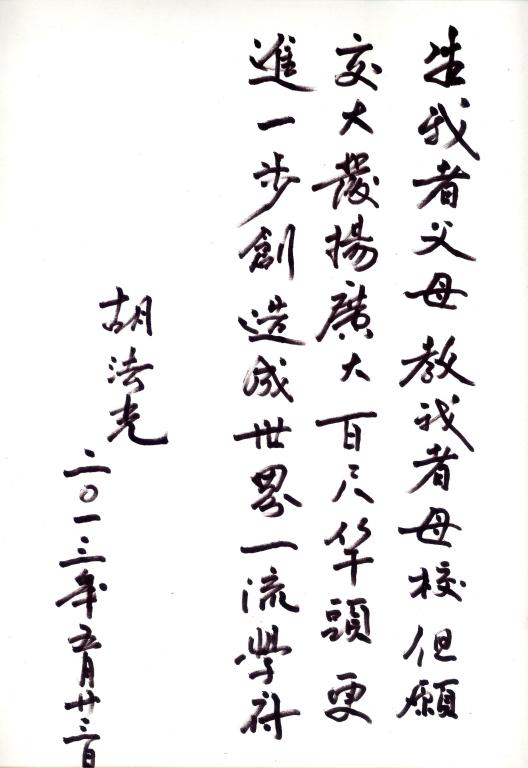 生我者父母教我者母校但願
交大發揚廣大百尺竿頭更
進一步創造成世界一流學府
胡法光
二〇一三年五月廿三日